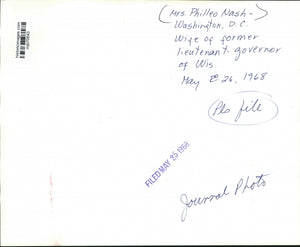 (Mrs Philleo Nash -
Washington, D.C.
Wife of former
lieutenant governor
of Wis.
May 26, 1968
file
FILED MAY 25 1968
Journal Photo